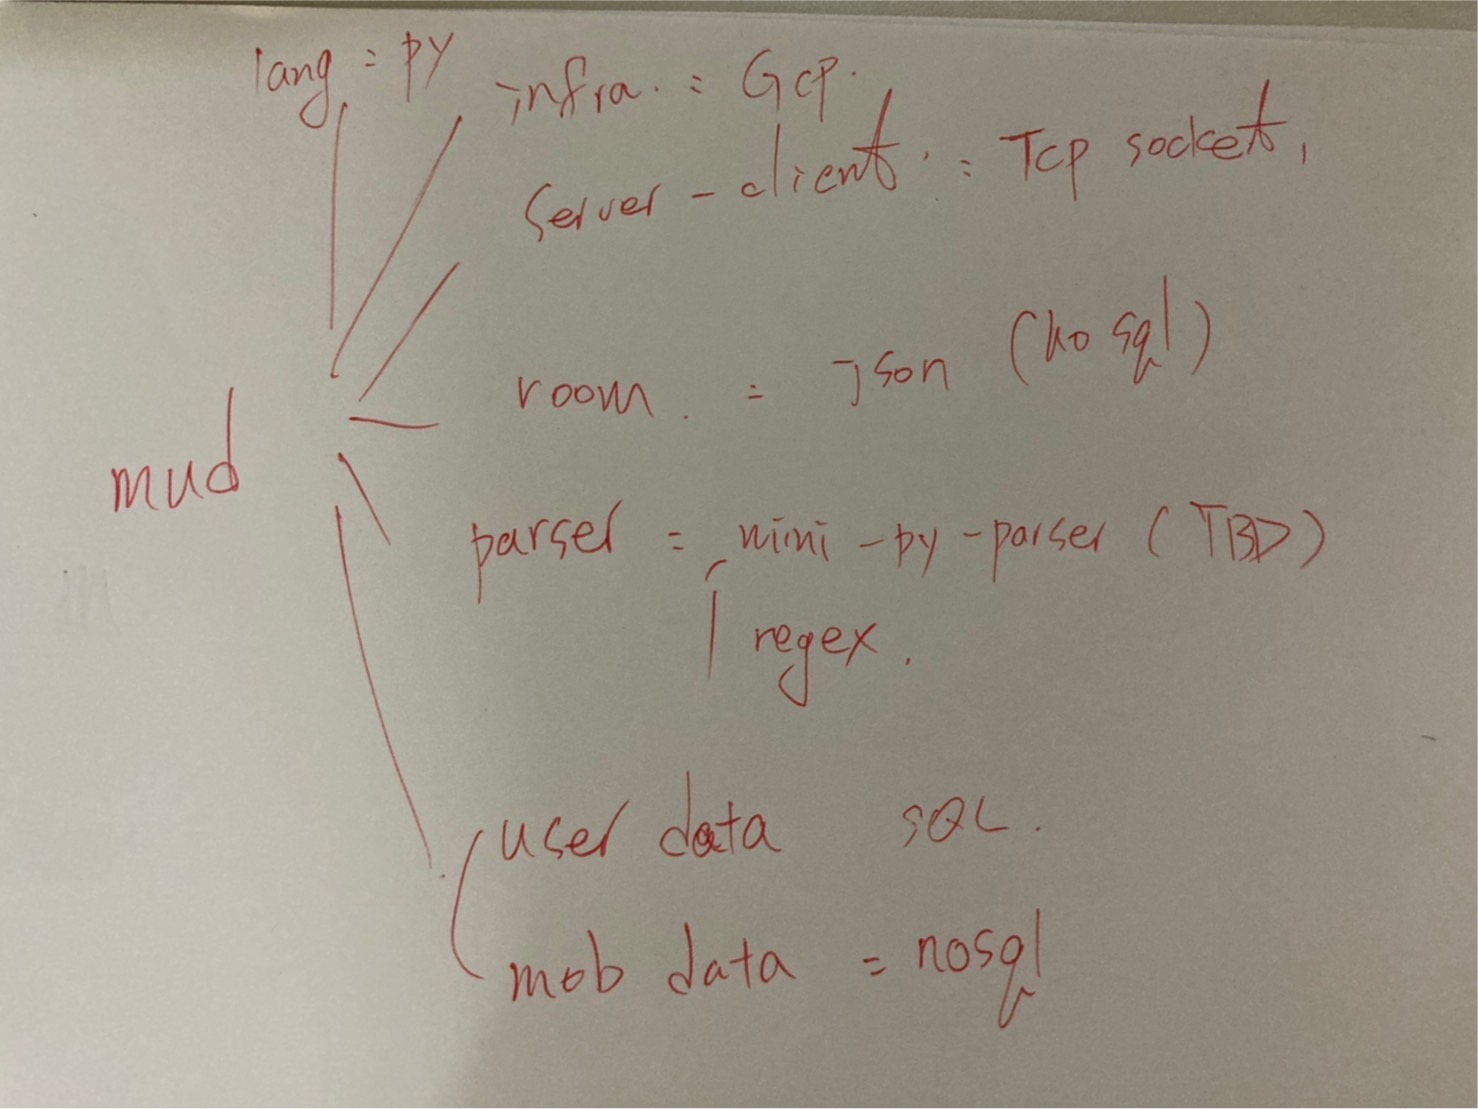 lang : py
infra. : GCP.
server - client : TCP socket,
room. = json (no sql)
mud
parser = mini - py - parser ( TBD )
regex.
user data SQL.
mob data = nosql